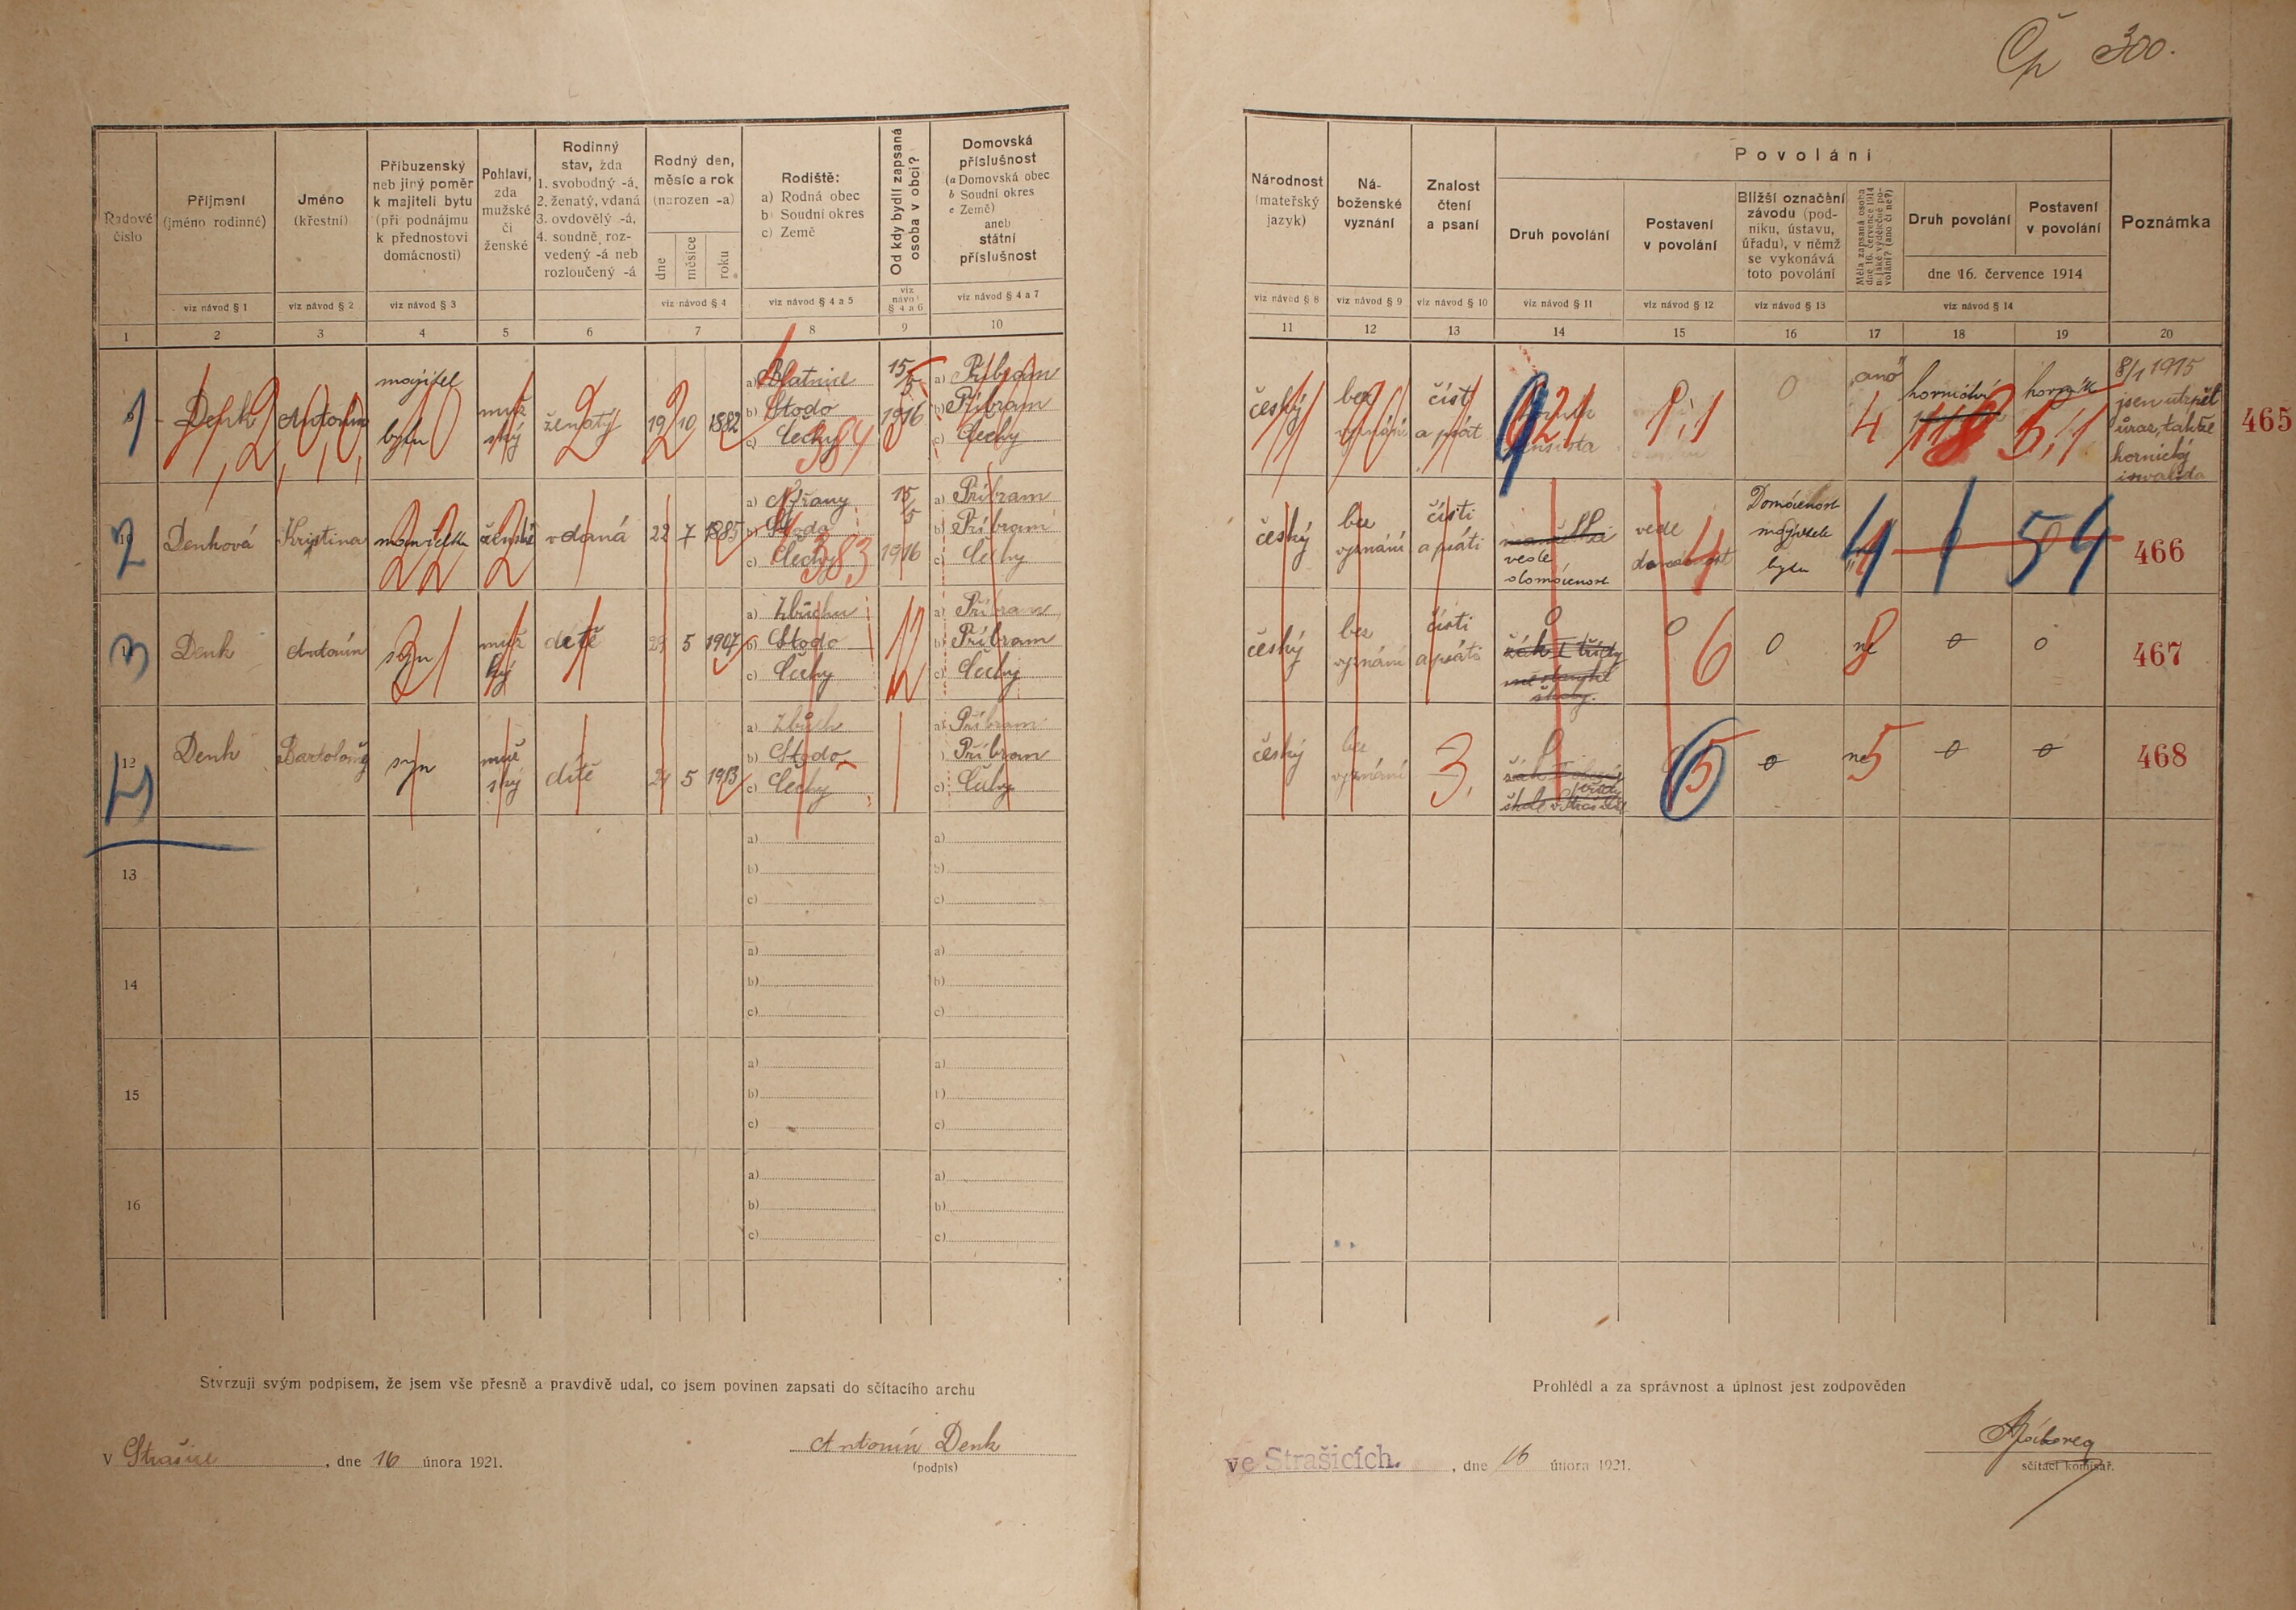 Čp 300.
Povolání
Řadové číslo
Příjmení
(jméno rodinné)
viz návod § 1
Jméno
(křestní)
viz návod § 2
Příbuzenský
neb jiný poměr
k majiteli bytu
(při podnájmu
k přednostovi
domácnosti)
viz návod § 3
Pohlaví,
zda
mužské
či
ženské
Rodinný
stav, žda
1. svobodný -á,
2. ženatý, vdaná
3. ovdovělý -á,
4. soudně roz-
vedený -á neb
rozloučený -á
Rodný den,
měsíc a rok
(narozen -a)
dne
měsíce
roku
viz návod § 4
Rodiště:
a) Rodná obec
b) Soudní okres
c) Země
viz návod § 4 a 5
Od kdy bydlí zapsaná
osoba v obci?
viz
návod
§ 4 a 6
Domovská
příslušnost
(a Domovská obec
b Soudní okres
c Země)
aneb
státní
příslušnost
viz návod § 4 a 7
Národnost
(mateřský
jazyk)
viz návod § 8
Ná-
boženské
vyznání
viz návod § 9
Znalost
čtení
a psaní
viz návod § 10
Druh povolání
viz návod § 11
Postavení
v povolání
viz návod § 12
Bližší označění
závodu (pod-
niku, ústavu,
úřadu), v němž
se vykonává
toto povolání
viz návod § 13
Měla zapsaná osoba
dne 16. července 1914
nějaké výdělečné po-
volání? (ano či ne?)
Druh povolání
Postavení
v povolání
dne 16. července 1914
viz návod § 14
Poznámka
1 2 3 4 5 6 7 8 9 10
11 12 13 14 15 16 17 18 19 20
1 Denk Antonín majitel bytu mužský ženatý 19 10 1882
a) Blatnice
b) Stodo
c) Čechy
384
15/5 1916
a) Příbram
b) Příbram
c) Čechy
český bez vyznání číst a psát
921
0
„ano“ 4 hornictví horník
8/1 1915
jsen utrpěl
úraz, takže
hornický
invalida
465
2 Denková Kristina manželka ženské vdaná 22 7 1885
a) Nýřany
b) Stodo
c) Čechy
383
15/5 1916
a) Příbram
b) Příbram
c) Čechy
český bez vyznání čísti a psáti
manželka
vede
domácnost
vede domácnost
Domácnost
majitele
bytu
4 1 54
466
3 Denk Antonín syn mužský dítě 29 5 1907
a) Zbůchu
b) Stodo
c) Čechy
a) Příbram
b) Příbram
c) Čechy
český bez vyznání čísti a psáti
0
0 6 0 ne 8 0 0
467
12 Denk Bartoloměj syn mužský dítě 24 5 1913
a) Zbůch
b) Stodo
c) Čechy
a) Příbram
b) Příbram
c) Čechy
český bez vyznání 3.
0
5 0 ne 5 0 0
468
13
a)
b)
c)
a)
b)
c)
14
a)
b)
c)
a)
b)
c)
15
a)
b)
c)
a)
b)
c)
16
a)
b)
c)
a)
b)
c)
Stvrzuji svým podpisem, že jsem vše přesně a pravdivě udal, co jsem povinen zapsati do sčítacího archu
v Strašice, dne 16 února 1921.
Antonín Denk
(podpis)
Prohlédl a za správnost a úplnost jest zodpověden
ve Strašicích. , dne 16 února 1921.
sčítací komisař.